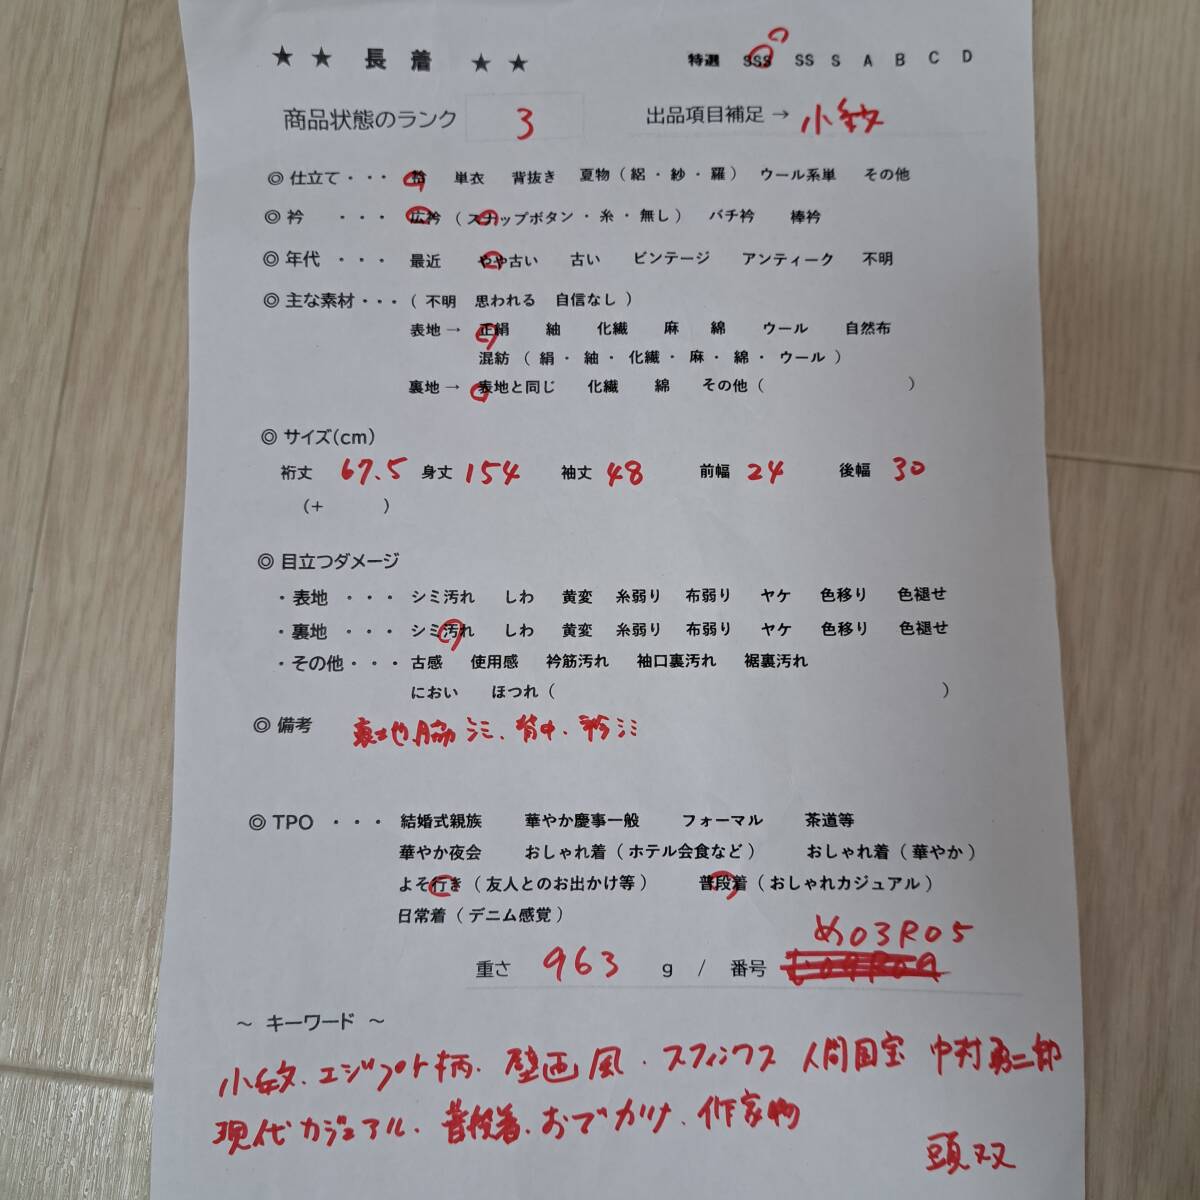 ★ ★ 長着 ★ ★ 特選 SSS SS S A B C D
商品状態のランク 3 出品項目補足 → 小紋
◎ 仕立て・・・ 袷 単衣 背抜き 夏物（絽・紗・羅） ウール系単 その他
◎ 衿 ・・・ 広衿（スナップボタン・糸・無し） バチ衿 棒衿
◎ 年代 ・・・ 最近 やや古い 古い ビンテージ アンティーク 不明
◎ 主な素材・・・（不明 思われる 自信なし）
表地→ 正絹 紬 化繊 麻 綿 ウール 自然布
混紡（絹・紬・化繊・麻・綿・ウール）
裏地→ 表地と同じ 化繊 綿 その他（ ）
◎ サイズ(cm)
裄丈 67.5 身丈 154 袖丈 48 前幅 24 後幅 30
（+ ）
◎ 目立つダメージ
・表地 ・・・ シミ汚れ しわ 黄変 糸弱り 布弱り ヤケ 色移り 色褪せ
・裏地 ・・・ シミ汚れ しわ 黄変 糸弱り 布弱り ヤケ 色移り 色褪せ
・その他・・・ 古感 使用感 衿筋汚れ 袖口裏汚れ 裾裏汚れ
におい ほつれ（ ）
◎ 備考 裏地脇シミ、背中、衿シミ
◎ TPO ・・・ 結婚式親族 華やか慶事一般 フォーマル 茶道等
華やか夜会 おしゃれ着（ホテル会食など） おしゃれ着（華やか）
よそ行き（友人とのお出かけ等） 普段着（おしゃれカジュアル）
日常着（デニム感覚）
め03R05
重さ 963 g / 番号
～ キーワード ～
小紋、エジプト柄、壁画風・スフィンクス 人間国宝 中村勇二郎
現代カジュアル、普段着、おでかけ、作家物
頭双